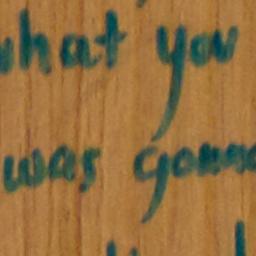 what you
was gonna